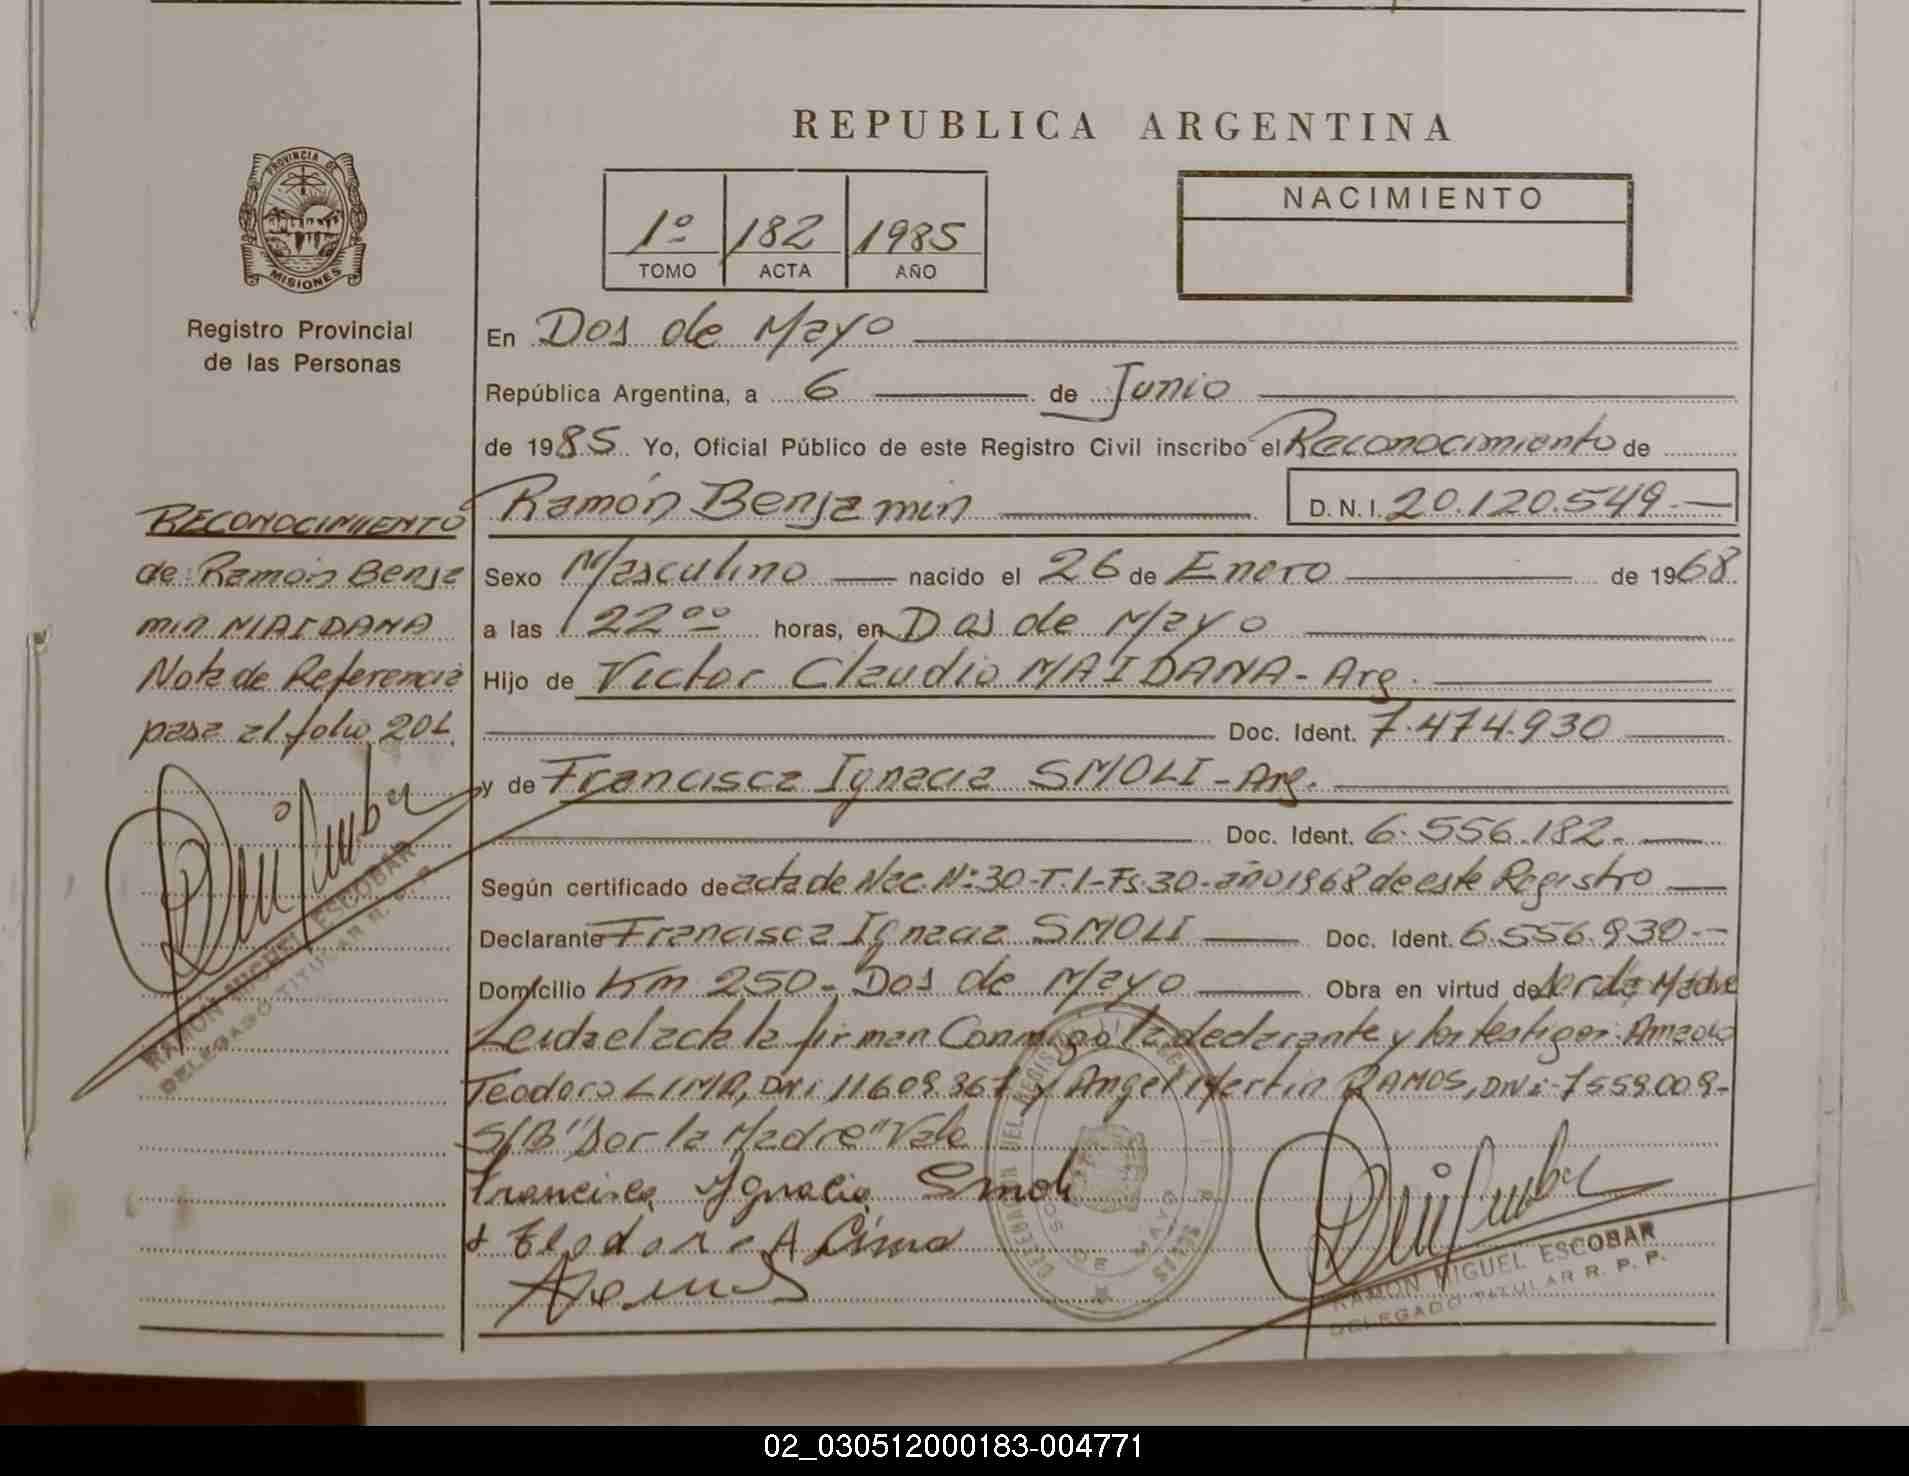 REPUBLICA ARGENTINA
PROVINCIA DE
MISIONES
Registro Provincial
de las Personas
1º 182 1985
TOMO ACTA AÑO
NACIMIENTO
En Dos de Mayo
República Argentina, a 6 de Junio
de 1985 Yo, Oficial Público de este Registro Civil inscribo el Reconocimiento de
Ramón Benjamin D.N.I. 20.120.549.-
Sexo Masculino nacido el 26 de Enero de 1968
a las 22°° horas, en Dos de Mayo
Hijo de Victor Claudio MAIDANA - Arg.
Doc. Ident. 7.474.930
y de Francisca Ignacia SMOLI - Arg.
Doc. Ident. 6.556.182.-
Según certificado de acta de Nac. Nº 30-T.1-Fs.30-año 1968 de este Registro
Declarante Francisca Ignacia SMOLI Doc. Ident. 6.556.930.-
Domicilio Km 250 - Dos de Mayo Obra en virtud de Ser la Madre
Leida el acta la firman Conmigo la declarante y los testigos: Amado
Teodoro LIMA, DNI 11.609.867 y Angel Martin RAMOS, DNI 7559.009-
S/B "Ser la Madre" Vale
Francisca Ignacia Smoli
Teodoro A Lima
RAMON MIGUEL ESCOBAR
DELEGADO TITULAR R. P. P.
DOS DE MAYO
RECONOCIMIENTO
de Ramón Benja
min MAIDANA
Nota de Referencia
pasa al folio 201.
RAMON MIGUEL ESCOBAR
DELEGADO TITULAR R. P. P.
02_030512000183-004771